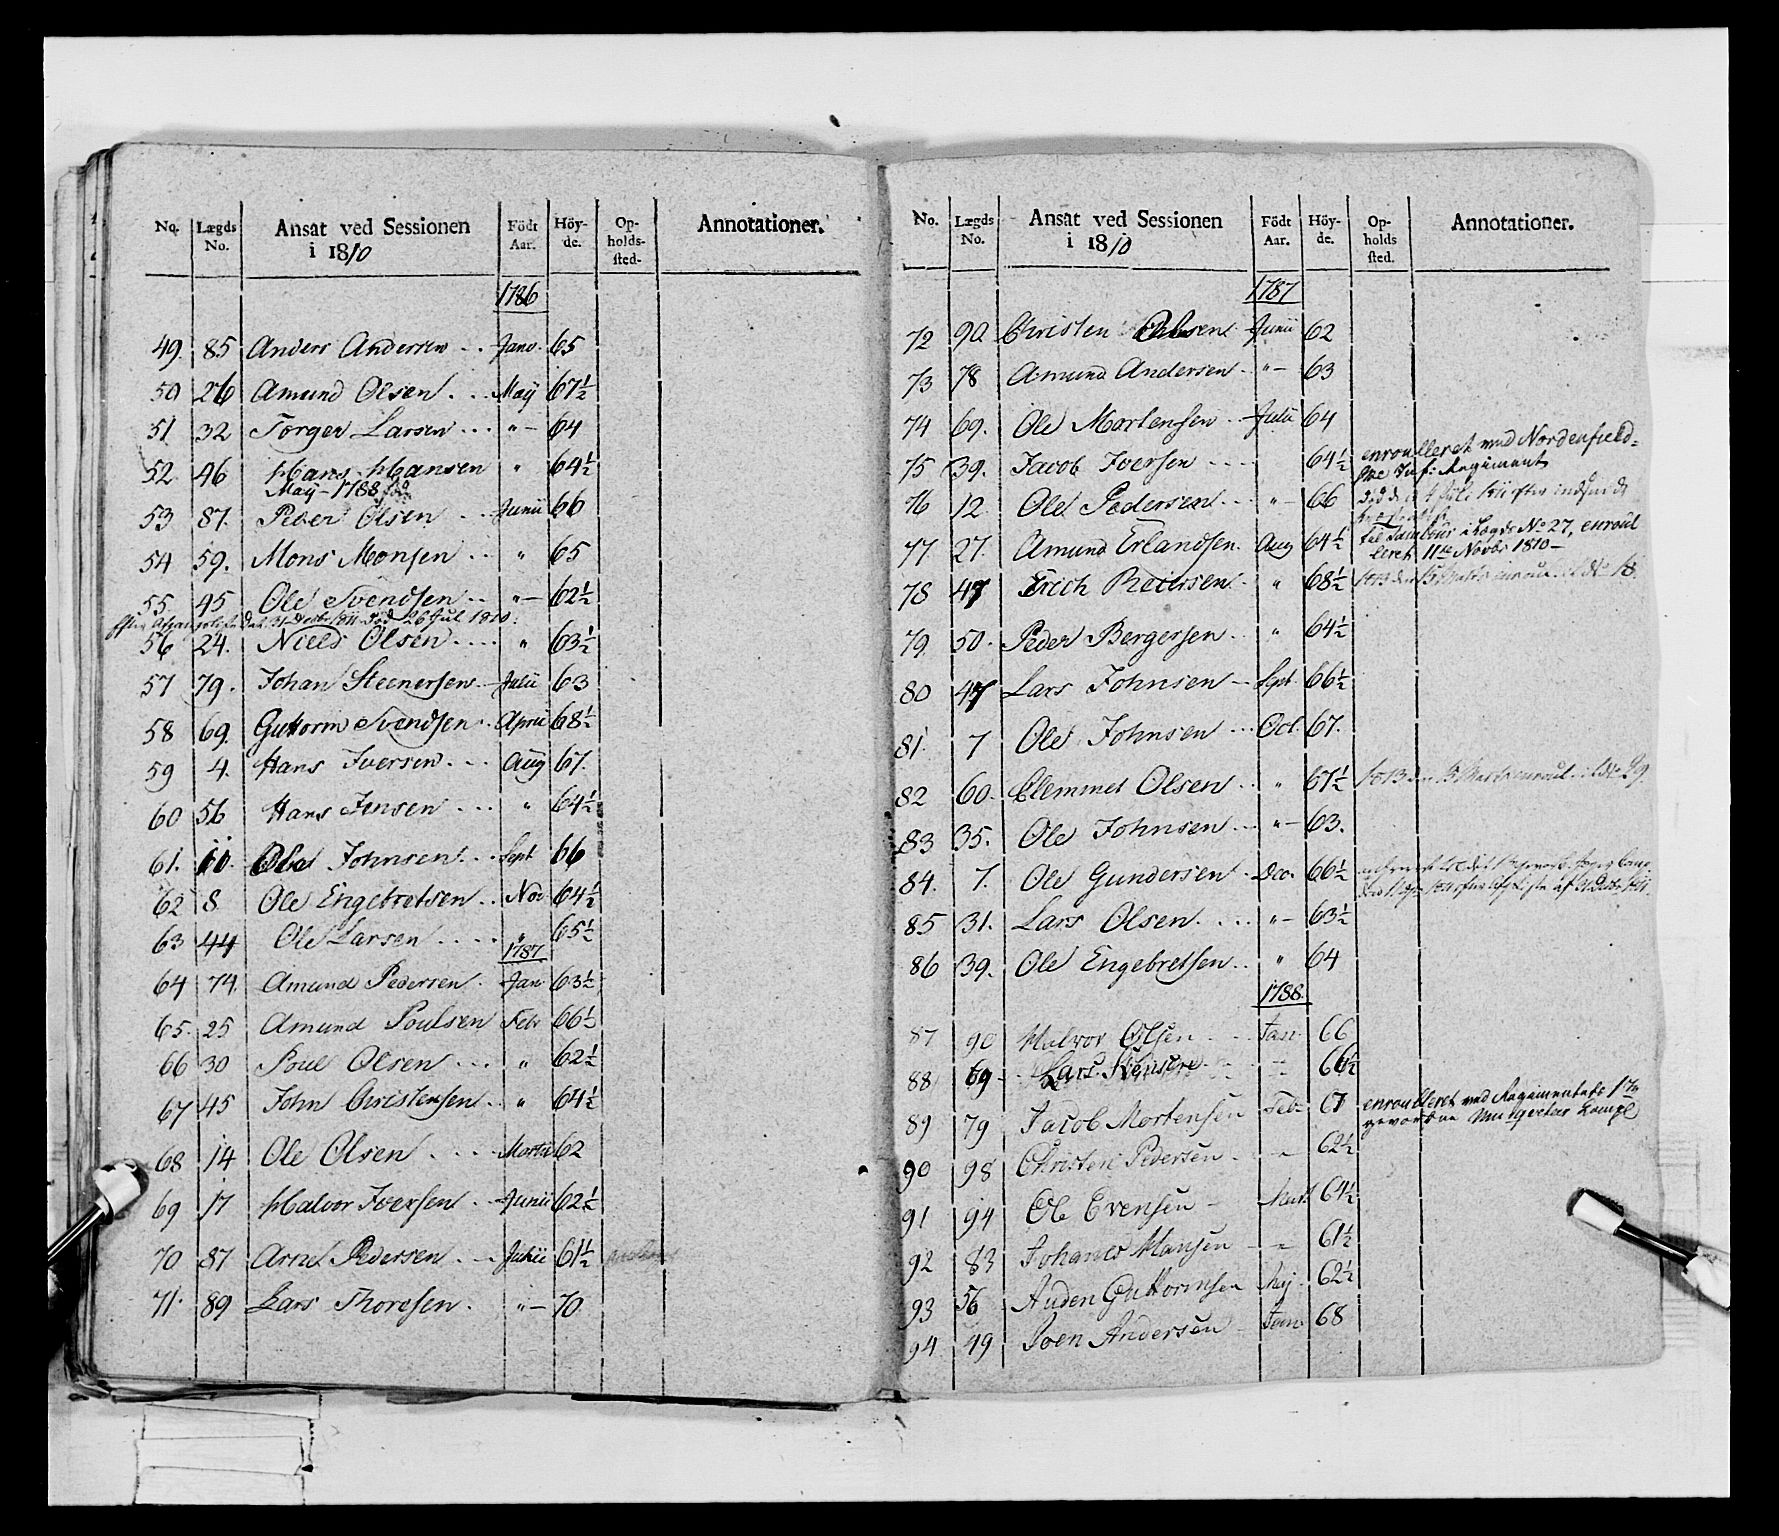 No. Lægds No. Ansat ved Sessionen i 1810 Födt Aar. Höy-de. Op-holds-sted- Annotationer.
1786
49. 85 Anders Andersen Janv. 65
50 26 Amund Olsen May 67½
51 32 Torger Larsen " 64
52. 46 Hans Hansen " 64½
May 1788 fød
53 87. Peder Olsen Junii 66
54 59. Mons Monsen " 65
55 45 Ole Svendsen " 62½
død 26 Jul 1810.
56 24. Niels Olsen " 63½
57 79. Johan Steenersen Julii 63
58 69. Guttorm Svendsen April 68½
59 4. Hans Iversen Aug 67.
60 56 Hans Jensen " 64½
61. 10. Ole Johnsen Sept 66
62 8 Ole Engebretsen Nov 64½
63 44 Ole Larsen " 65½
1787
64 74 Amund Pedersen Jan 63½
65. 25 Amund Poulsen Febr 66½
66 30 Poul Olsen " 62½
67 45 John Christensen " 64½
68 14 Ole Olsen Martii 62
69 17 Halvor Iversen Junii 62½
70 87 Arne Pedersen Julii 61½
71. 89 Lars Thoresen " 70
No. Lægds No. Ansat ved Sessionen i 1810 Födt Aar. Höy-de. Op-holds sted. Annotationer.
1787
72 90 Christen Olsen Junii 62
73 78 Amund Andersen " 63
74 69. Ole Mortensen Julii 64
75 39. Jacob Iversen 64½ enroulleret ved Nordenfield-
ske Inf: Regiment
76 12. Ole Pedersen " 66
77 27. Amund Erlandsen Aug 64½ til Tambour i Lægds No 27, enroul
leret 11te Novbr 1810
78 47 Erich Petersen " 68½
79. 50. Peder Bergersen " 64½
80 47 Lars Johnsen Sept 66½
81. 7 Ole Johnsen Oct. 67.
82 60. Clemmet Olsen " 67½
83 35. Ole Johnsen " 63.
84. 7. Ole Gundersen Dec. 66½
85 31. Lars Olsen " 63½
86 39. Ole Engebretsen " 64
1788
87 90 Halvor Olsen Jan 66
88 69 Lars 66½
89 79 Jacob Mortensen Feb. 67 enroulleret ved Regimentets 1te
gevorbne Musqueteer Compe
90 98 Christen Pedersen " 62½
91 94 Ole Evensen Mart 64½
92 83 Johanes Hansen " 61½
93 56 Auden Guttormsen Maj 62½
94 49 Soen Andersen 68